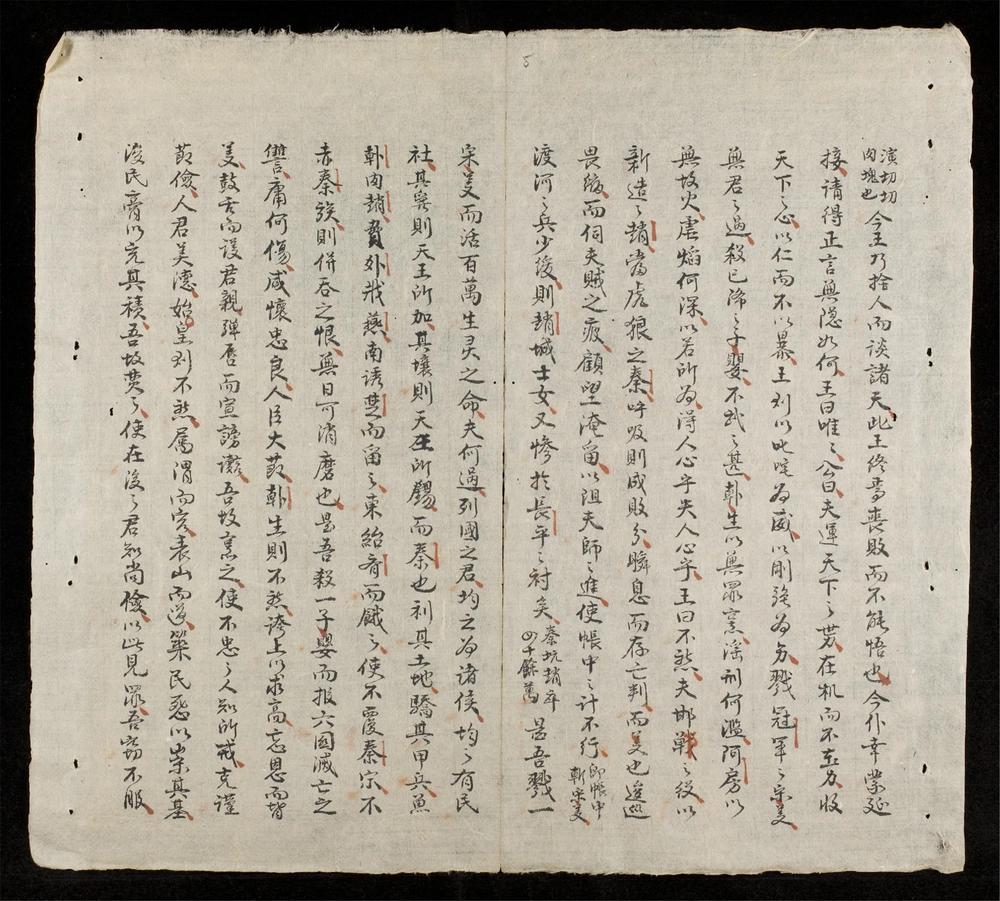 演切切
肉塊也
今王乃捨人而談諸天此王終喪敗而不能悟也今仆幸蒙延
接請得正言無隐如何王曰唯々公曰夫運天下之势在机而不在力收
天下之心以仁而不以暴王则以叱咤為威以剛強為力戮冠軍之宋義
無君之過殺已降之子嬰不武之甚韓生以無罪烹滛刑何濫阿房以
無故火虐焰何深以若所為得人心乎失人心乎王曰不然夫邯戰之役以
新造之趙當虎狼之秦呼吸則成敗分瞬息而存亡判而義也逡巡
畏縮而伺夫賊之疲顧望淹留以阻夫師之進使帳中之計不行
即帳中
斬宋義
渡河之兵少後則趙城士女又慘於長平之矣
秦坑趙卒
四十餘萬
是吾戮一
宋義而活百萬生灵之命夫何過列國之君均之為諸侯均之有民
社其爵則天王所加其壤則天王所錫而秦也利其土地驕其甲兵魚
韓肉趙費外燕南誘楚而留之東紿齊而餓之使不覆秦宗不
赤秦族則併吞之恨無日可消磨也是吾殺一子嬰而报六國滅亡之
讐庸何傷咸懷忠良人臣大節韓生則不然誇上以求高忘恩而背
義鼓舌而議君親弹唇而宣謗讟吾故烹之使不忠之人知所戒克謹
節儉人君美德始皇则不然屬渭而宫表山而道築民愁以崇其基
浚民膏以充其積吾故焚之使在後之君知尚儉以此見罪吾窃不服